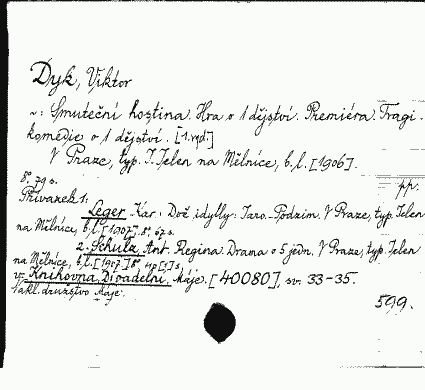 Dyk, Viktor
~: Smuteční hostina. Hra o 1 dějství. Premiéra. Tragi-
komedie o 1 dějství. [1. vyd.]
V Praze, typ. J. Jelen na Mělníce, b. l. [1906].
8°. 79 s.
pp.
Přívazek 1:
Leger Kar.: Dvě idylly: Jaro-Podzim. V Praze, typ. Jelen
na Mělníce, b. l. [1907]. 8°. 67 s.
2. Schulz Ant. Regina. Drama o 5 jedn. V Praze, typ. Jelen
na Mělníce, b. l. [1907]. 8°
v: Knihovna Divadelní Máje. [40080], sv. 33-35.
Nakl. družstvo Máje.
599.